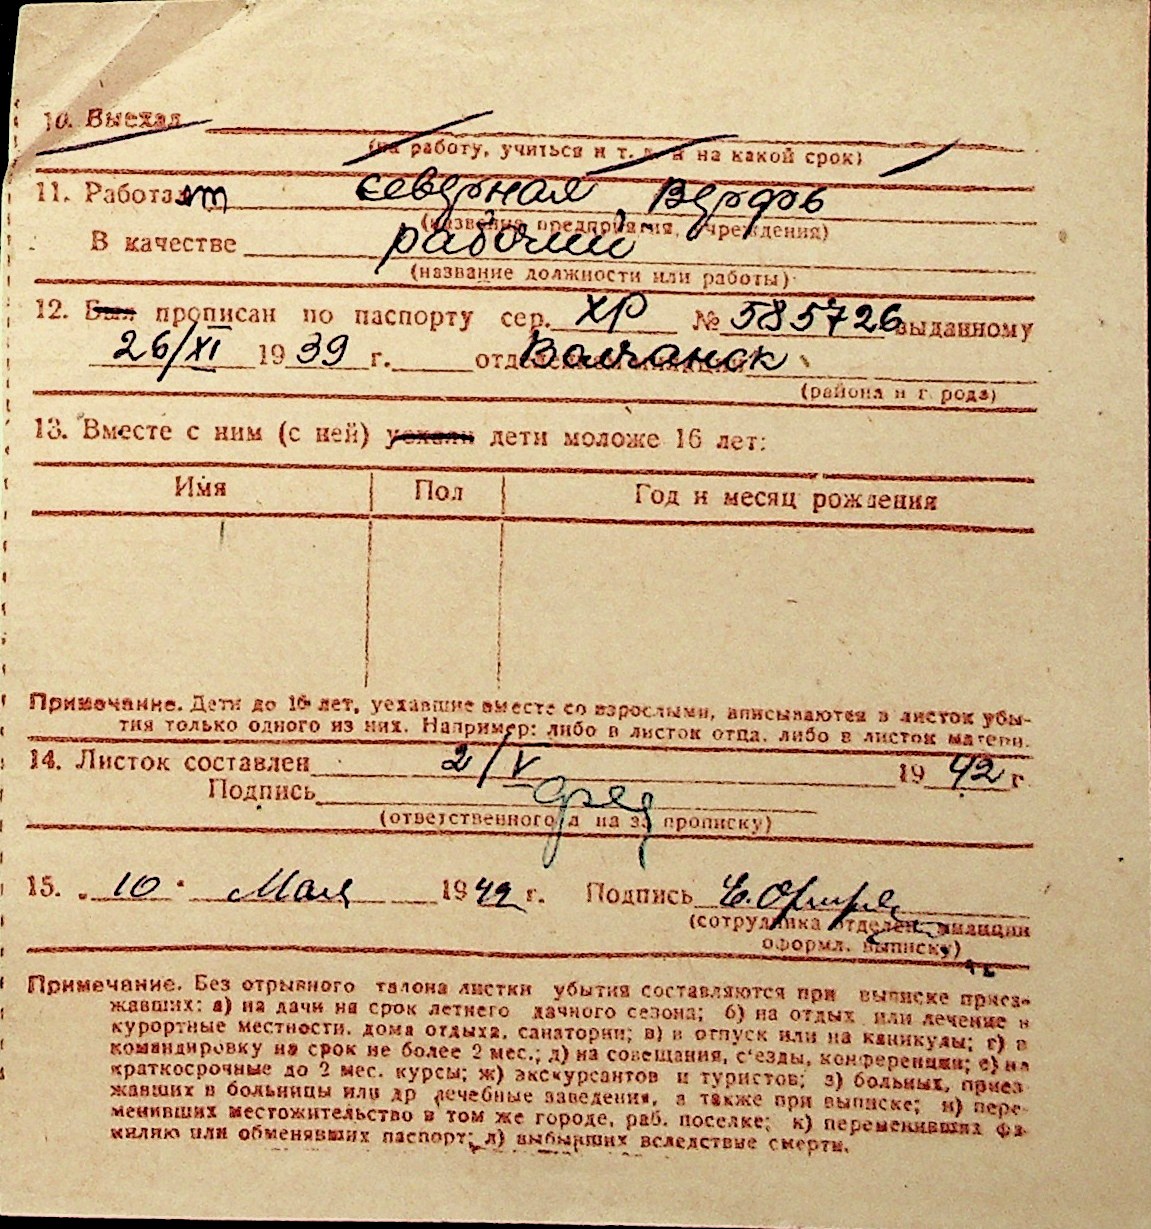 10. Выехал
(на работу, учиться и т. д. и на какой срок)
11. Работает северная Верфь
(название предприятия, учреждения)
В качестве рабочий
(название должности или работы)
12. Был прописан по паспорту сер. ХР № 585726 выданному
26/XI 1939 г. отделением милиции Волчанск
(района и города)
13. Вместе с ним (с ней) уехали дети моложе 16 лет:
Имя Пол Год и месяц рождения
Примечание. Дети до 16 лет, уехавшие вместе со взрослыми, вписываются в листок убы-
тия только одного из них. Например: либо в листок отца, либо в листок матери.
14. Листок составлен 2/V 1942 г.
Подпись
(ответственного л на за прописку)
15. „10" Мая 1942 г. Подпись
(сотрудника отделен. милиции
оформл. выписку)
Примечание. Без отрывного талона листки убытия составляются при выписке приез-
жавших: а) на дачи на срок летнего дачного сезона; б) на отдых или лечение в
курортные местности, дома отдыха, санатории; в) в отпуск или на каникулы; г) в
командировку на срок не более 2 мес.; д) на совещания, с'езды, конференции; е) на
краткосрочные до 2 мес. курсы; ж) экскурсантов и туристов; з) больных, приез-
жавших в больницы или др лечебные заведения, а также при выписке; и) пере-
менивших местожительство в том же городе, раб. поселке; к) переменивших фа-
милию или обменявших паспорт; л) выбывших вследствие смерти.